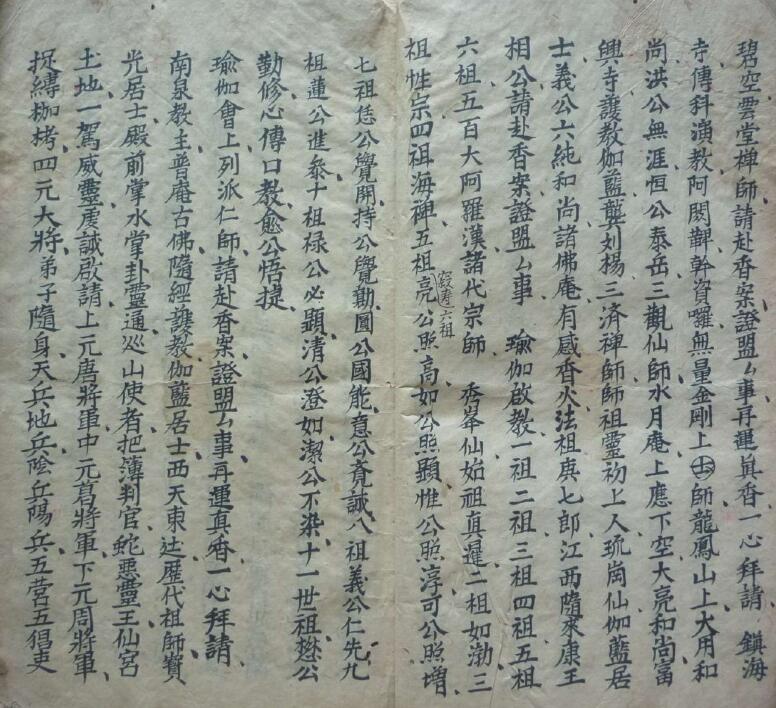 碧空雲堂禅師請赴香案證盟厶事再運真香一心拜請　鎮海
寺傳科演教阿閦鞞幹資囉無量金剛上師龍鳳山上大用和
尚洪公無涯恒公泰岳三觀仙師水月庵上應下空大亮和尚富
興寺護教伽藍龔刘楊三済禅師師祖靈初上人玩崗仙伽藍居
士義公六純和尚諸佛庵有感香火法祖庾七郎江西隨來康王
相公請赴香案證盟厶事　瑜伽啟教一祖二祖三祖四祖五祖
六祖五百大阿羅漢諸代宗師　秀峯仙始祖真暹二祖如渤三
祖性宗四祖海禅五祖亮公照高如公照顕惟公照淳可公照增
寂寿六祖
七祖恁公覺開持公覺勘圓公國能意公竟誠八祖義公仁先九
祖蓮公進參十祖禄公必顕清公澄如潔公不染十一世祖懋公
勤修心傳口教愈公悟提
瑜伽會上列派仁師請赴香案證盟厶事再運真香一心拜請
南泉教主普庵古佛隨經護教伽藍居士西天東土歷代祖師寳
光居士殿前掌水掌卦靈通巡山使者把薄判官蛇惡靈王仙宮
土地一駕威靈虔誠啟請上元唐將軍中元葛將軍下元周將軍
捉縛枷栲四元大將弟子隨身天兵地兵陰兵陽兵五营五猖吏